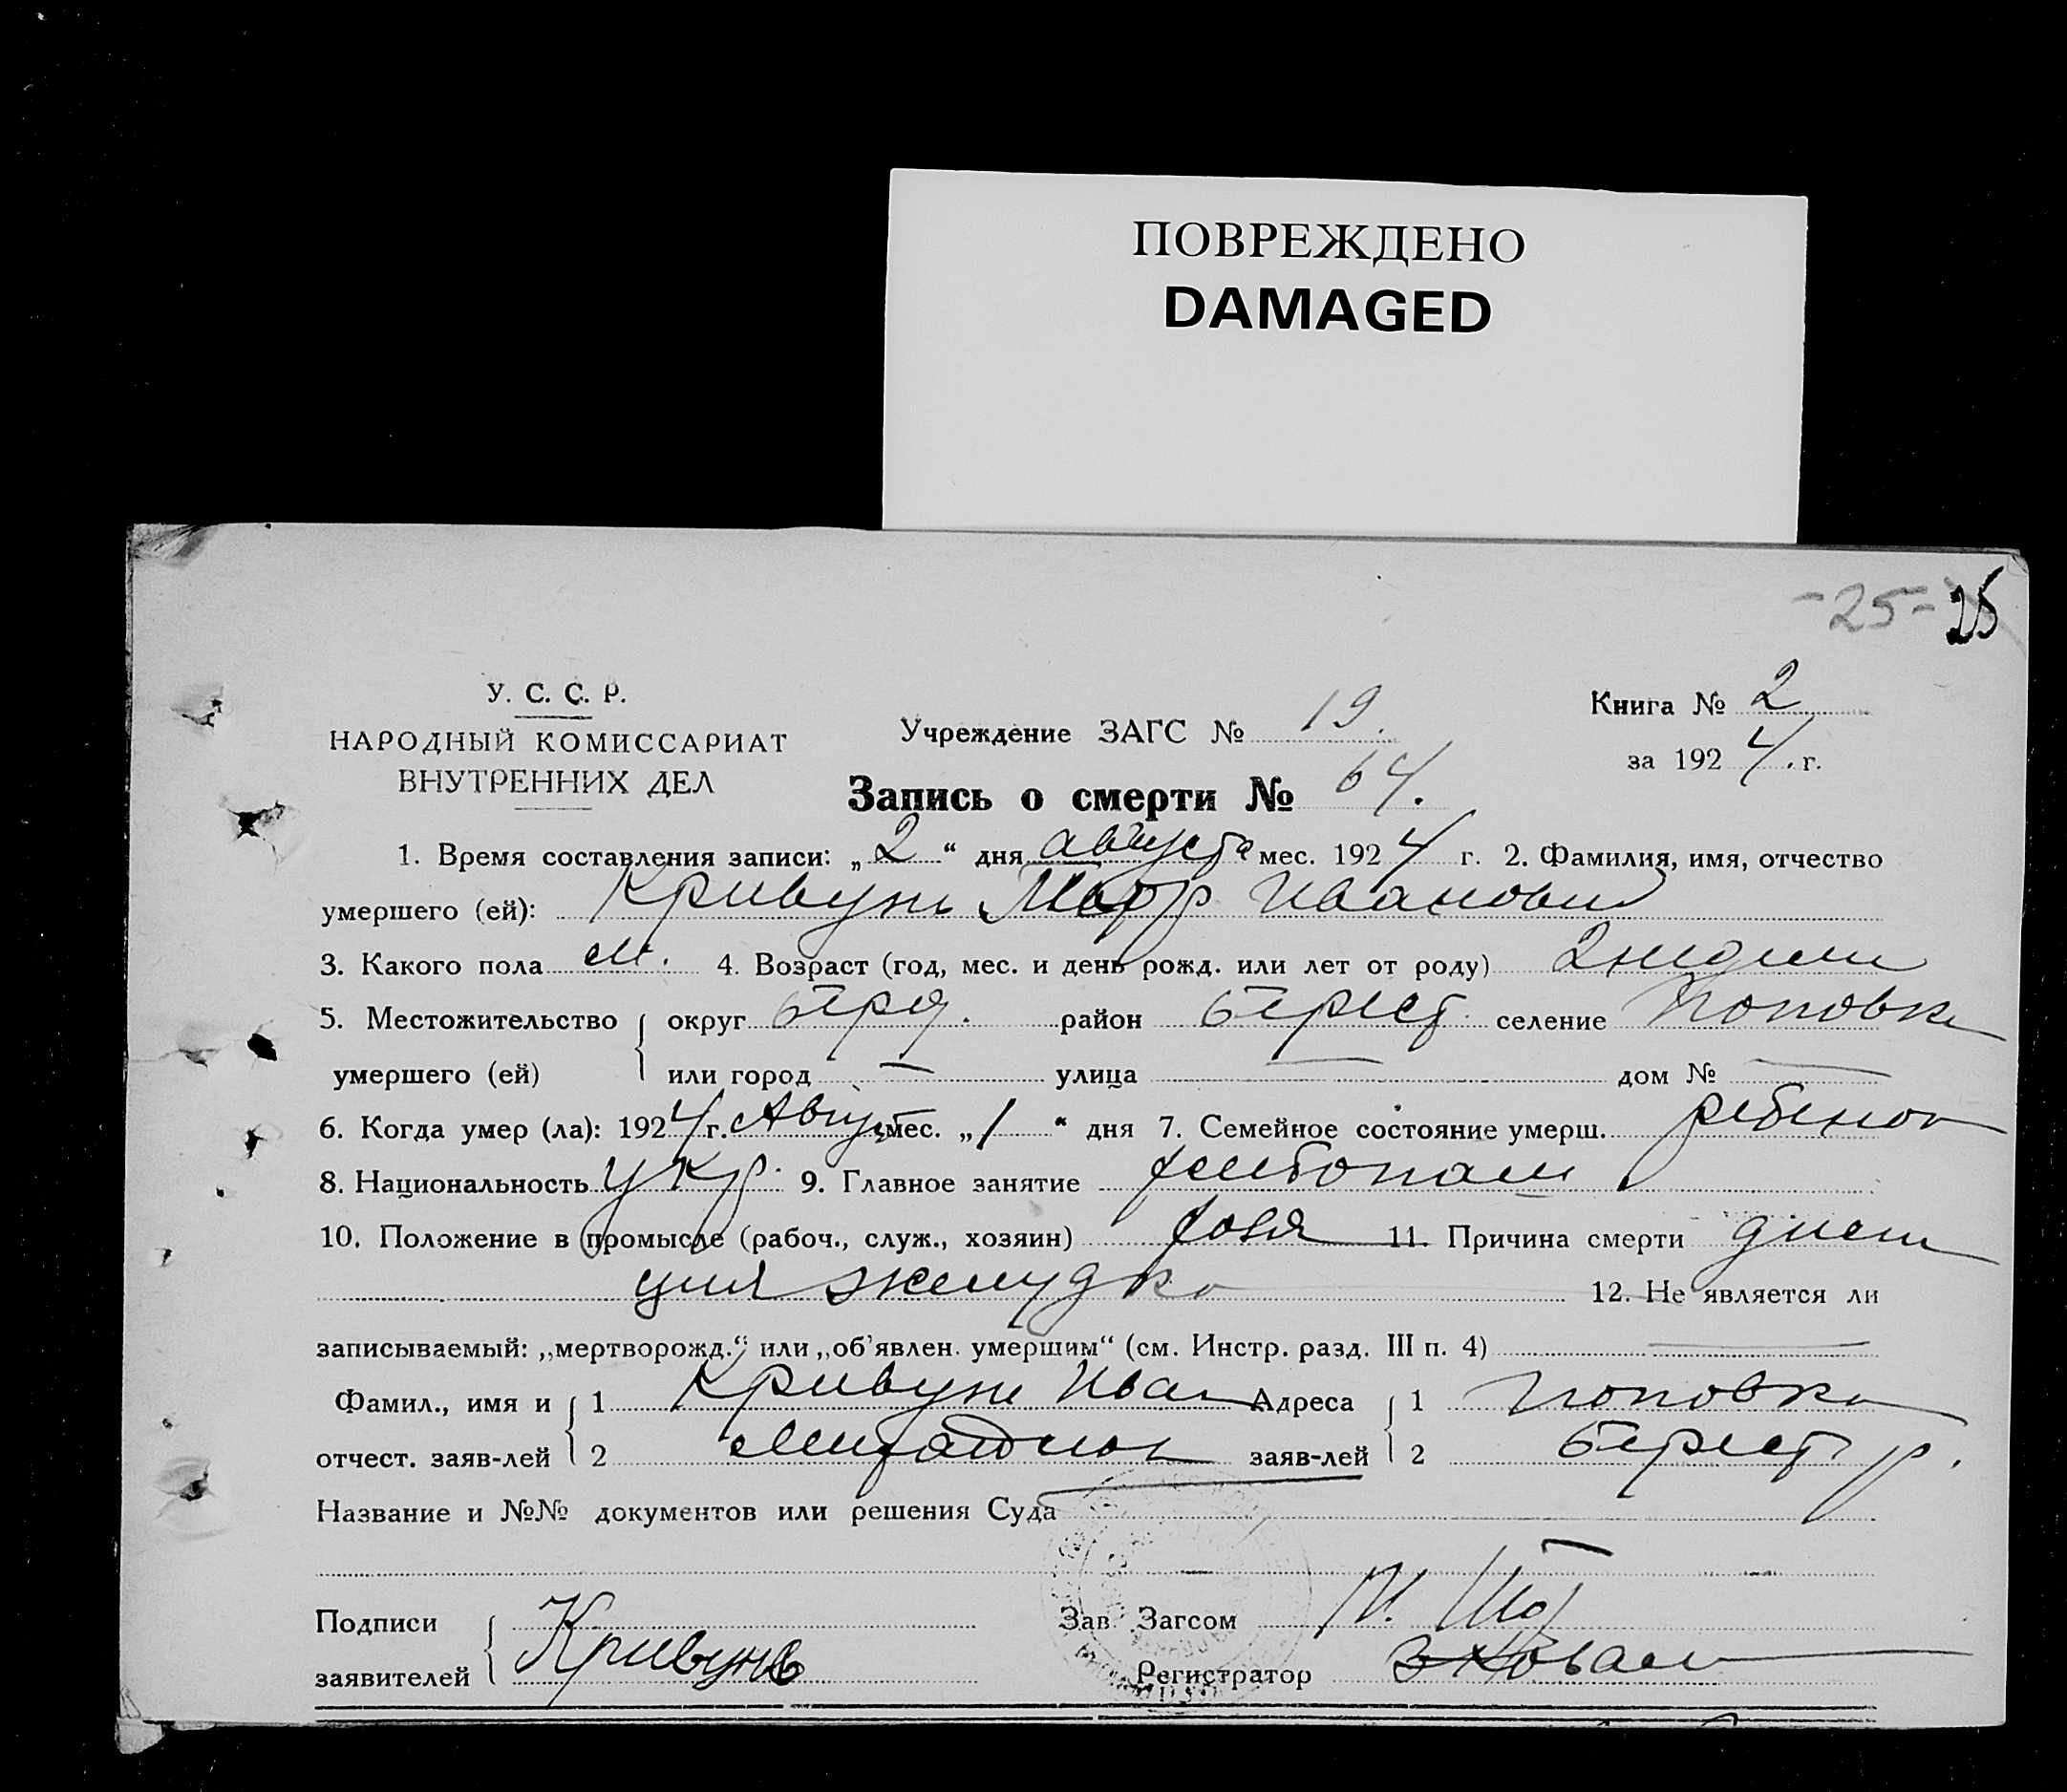 ПОВРЕЖДЕНО
DAMAGED
-25- 25
У. С. С. Р.
НАРОДНЫЙ КОМИССАРИАТ
ВНУТРЕННИХ ДЕЛ
Учреждение ЗАГС № 19.
Книга № 2
за 1924 г.
Запись о смерти № 64.
1. Время составления записи: „2“ дня августа мес. 1924 г. 2. Фамилия, имя, отчество
умершего (ей): Кривунь Иванович
3. Какого пола м. 4. Возраст (год, мес. и день рожд. или лет от роду) 2 недели
5. Местожительство округ Берд. район Берест. селение Поповка
умершего (ей) или город — улица — дом № —
6. Когда умер (ла): 1924 г. Август мес. „1“ дня 7. Семейное состояние умерш. ребенок
8. Национальность Укр. 9. Главное занятие хлебопаш
10. Положение в промысле (рабоч., служ., хозяин) хозя 11. Причина смерти
желудка 12. Не является ли
записываемый: „мертворожд.“ или „об'явлен. умершим“ (см. Инстр. разд. III п. 4) —
Фамил., имя и 1 Кривунь Иван Адреса 1 Поповка
отчест. заяв-лей 2 заяв-лей 2 Берест р.
Название и №№ документов или решения Суда
Подписи Зав. Загсом
заявителей Кривунь Регистратор